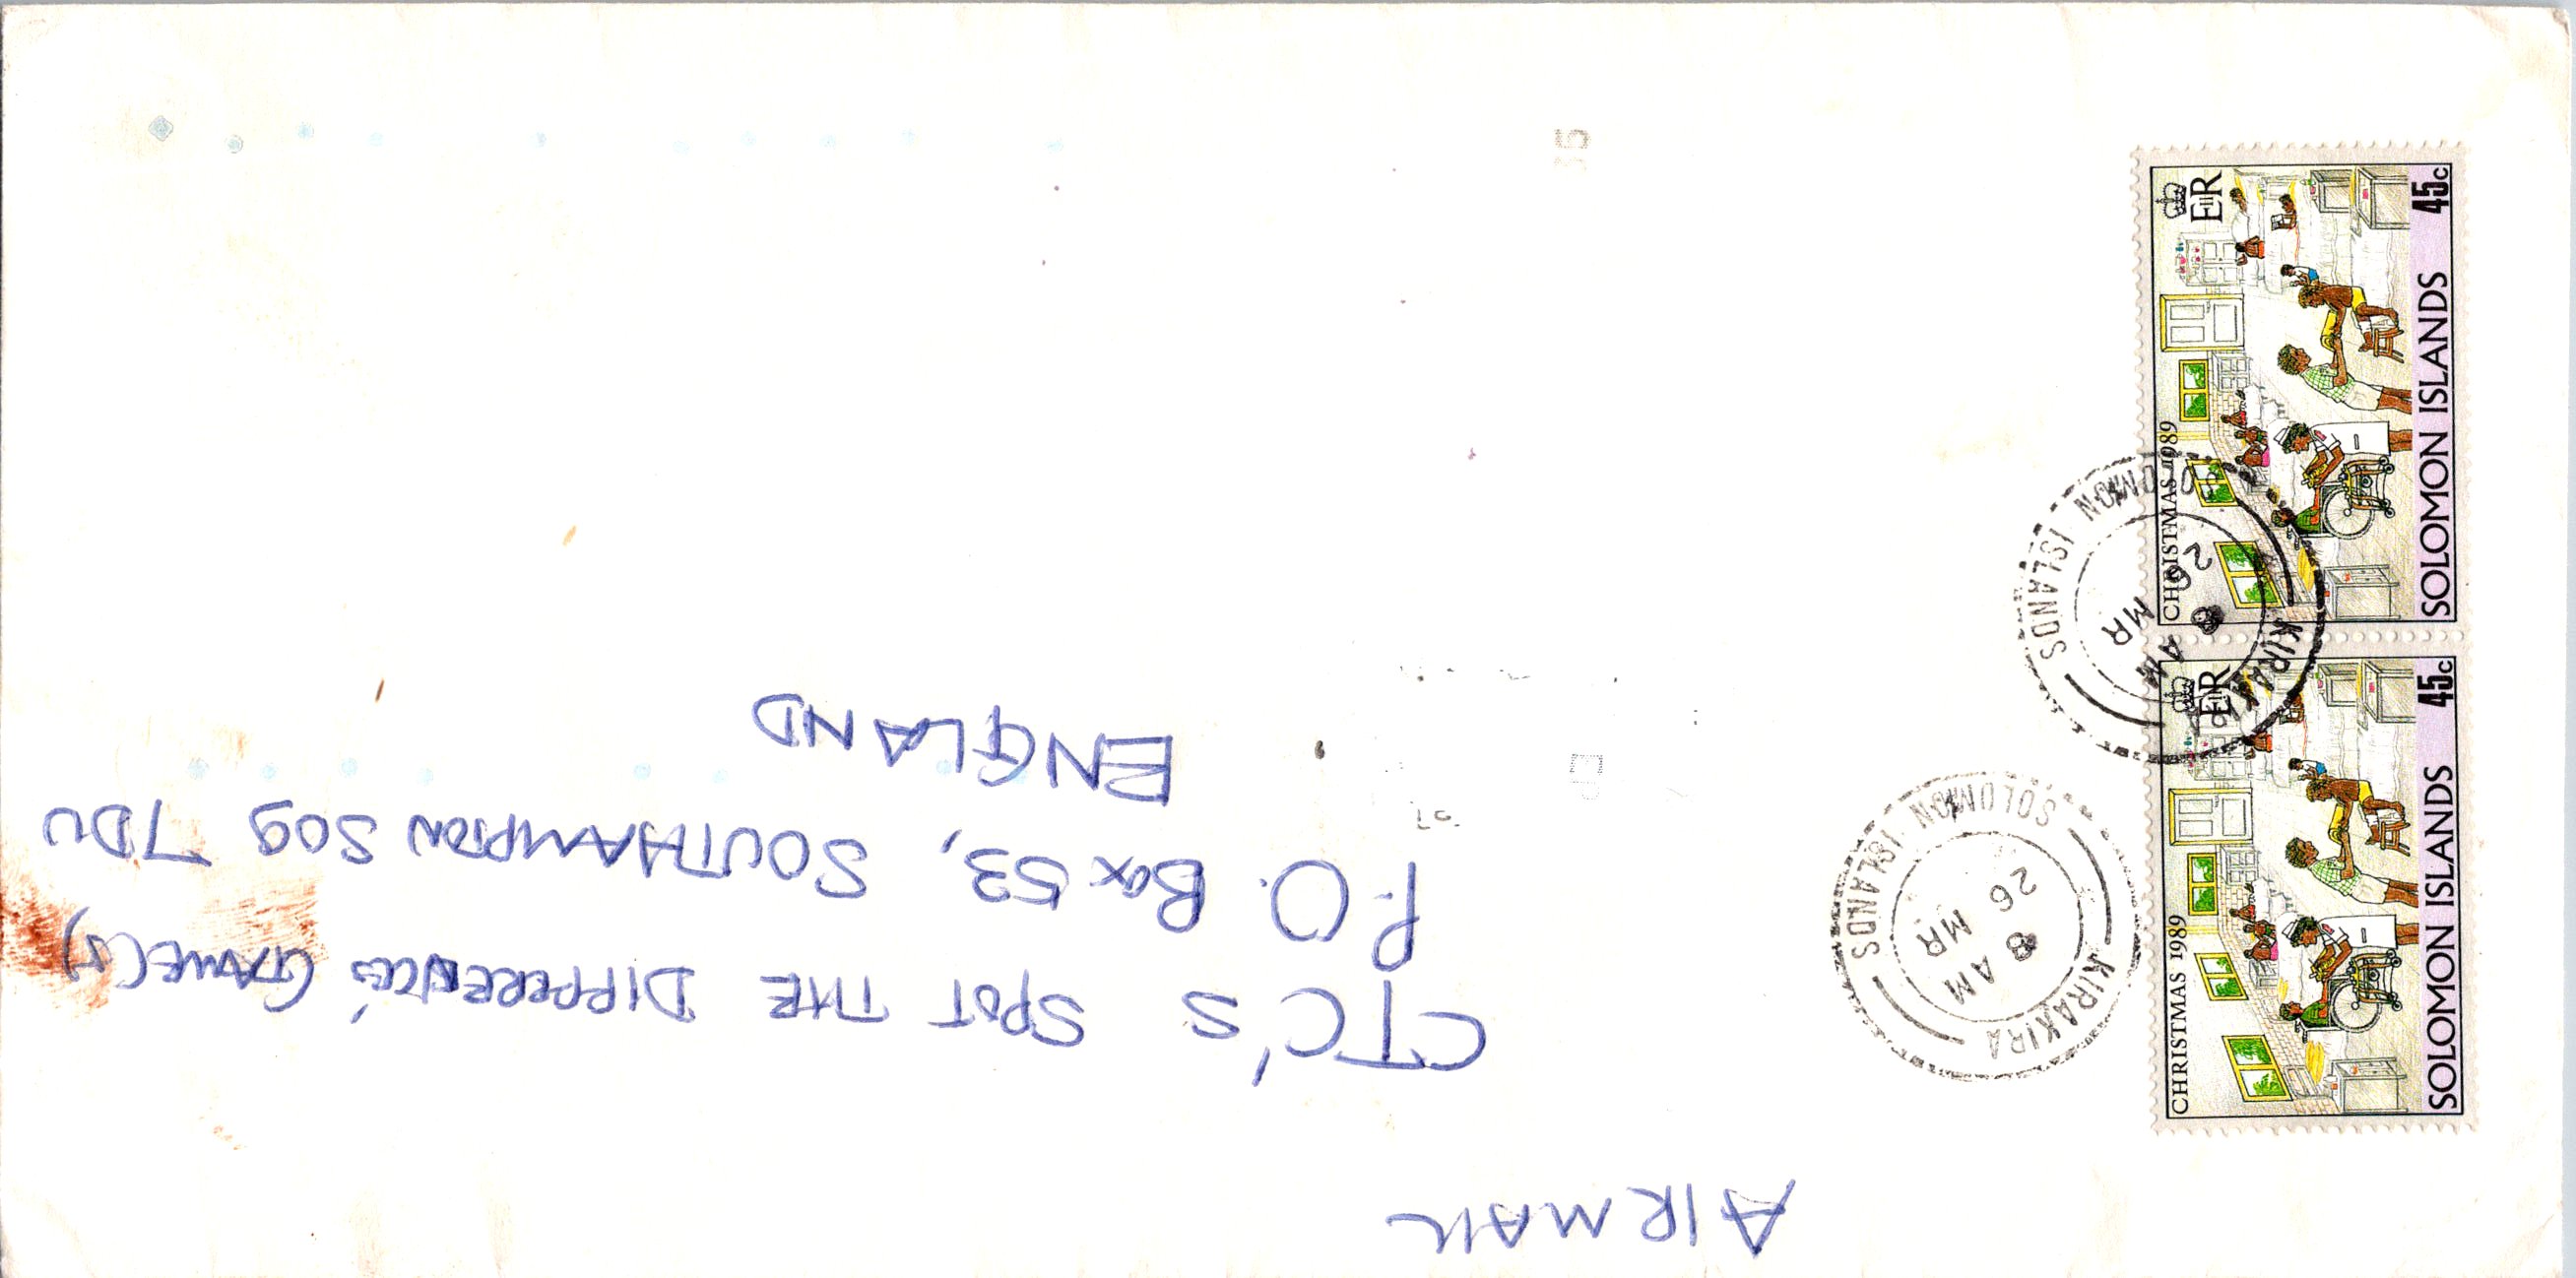 AIRMAIL
CTC'S SPOT THE DIFFERENCE' GAME(5)
P.O. Box 53, SOUTHAMPTON SO9 7DU
ENGLAND
CHRISTMAS 1989
EIIR
SOLOMON ISLANDS 45c
CHRISTMAS 1989
EIIR
SOLOMON ISLANDS 45c
KIRAKIRA
8 AM
26 MR
SOLOMON ISLANDS
KIRAKIRA
8 AM
26 MR
SOLOMON ISLANDS